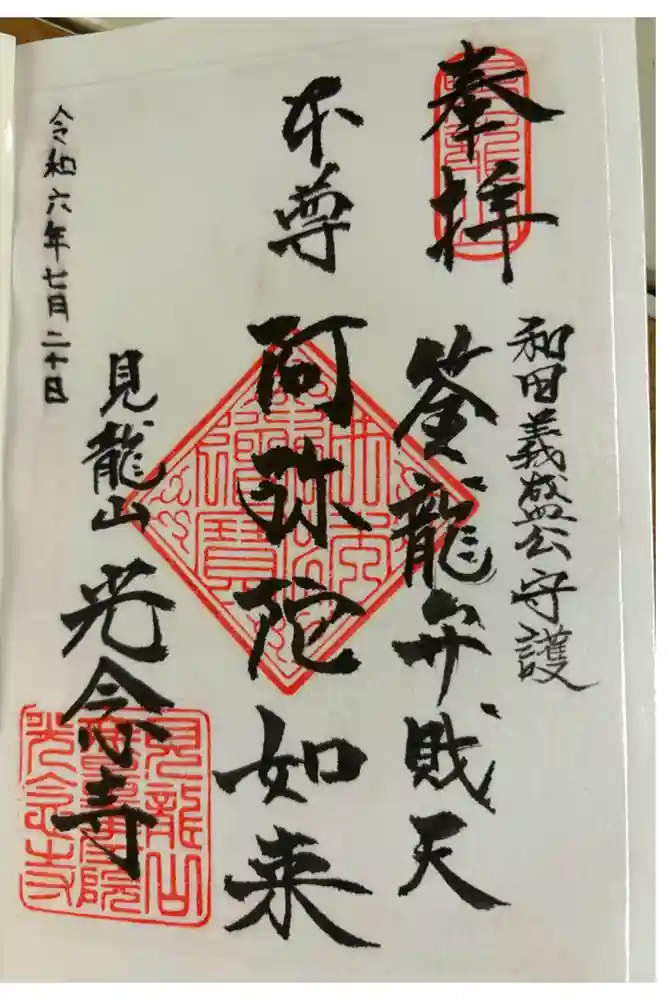 奉拝
和田義盛公守護
筌龍弁財天
本尊
阿弥陀如来
見龍山
光念寺
令和六年七月二十日
見龍山
光念寺